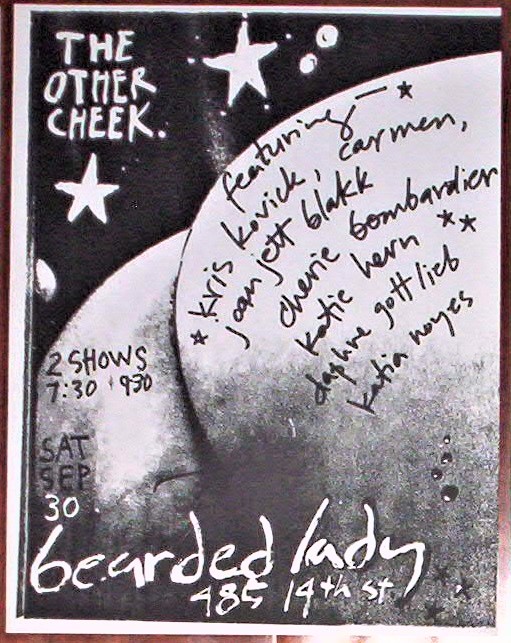 THE
OTHER
CHEEK.
featuring —
kris kovick, carmen,
joan jett blakk
cherie bombardier
katie hern
daphne gottlieb
katia noyes
2 SHOWS
7:30 + 930
SAT
SEP
30
bearded lady
485 14th st